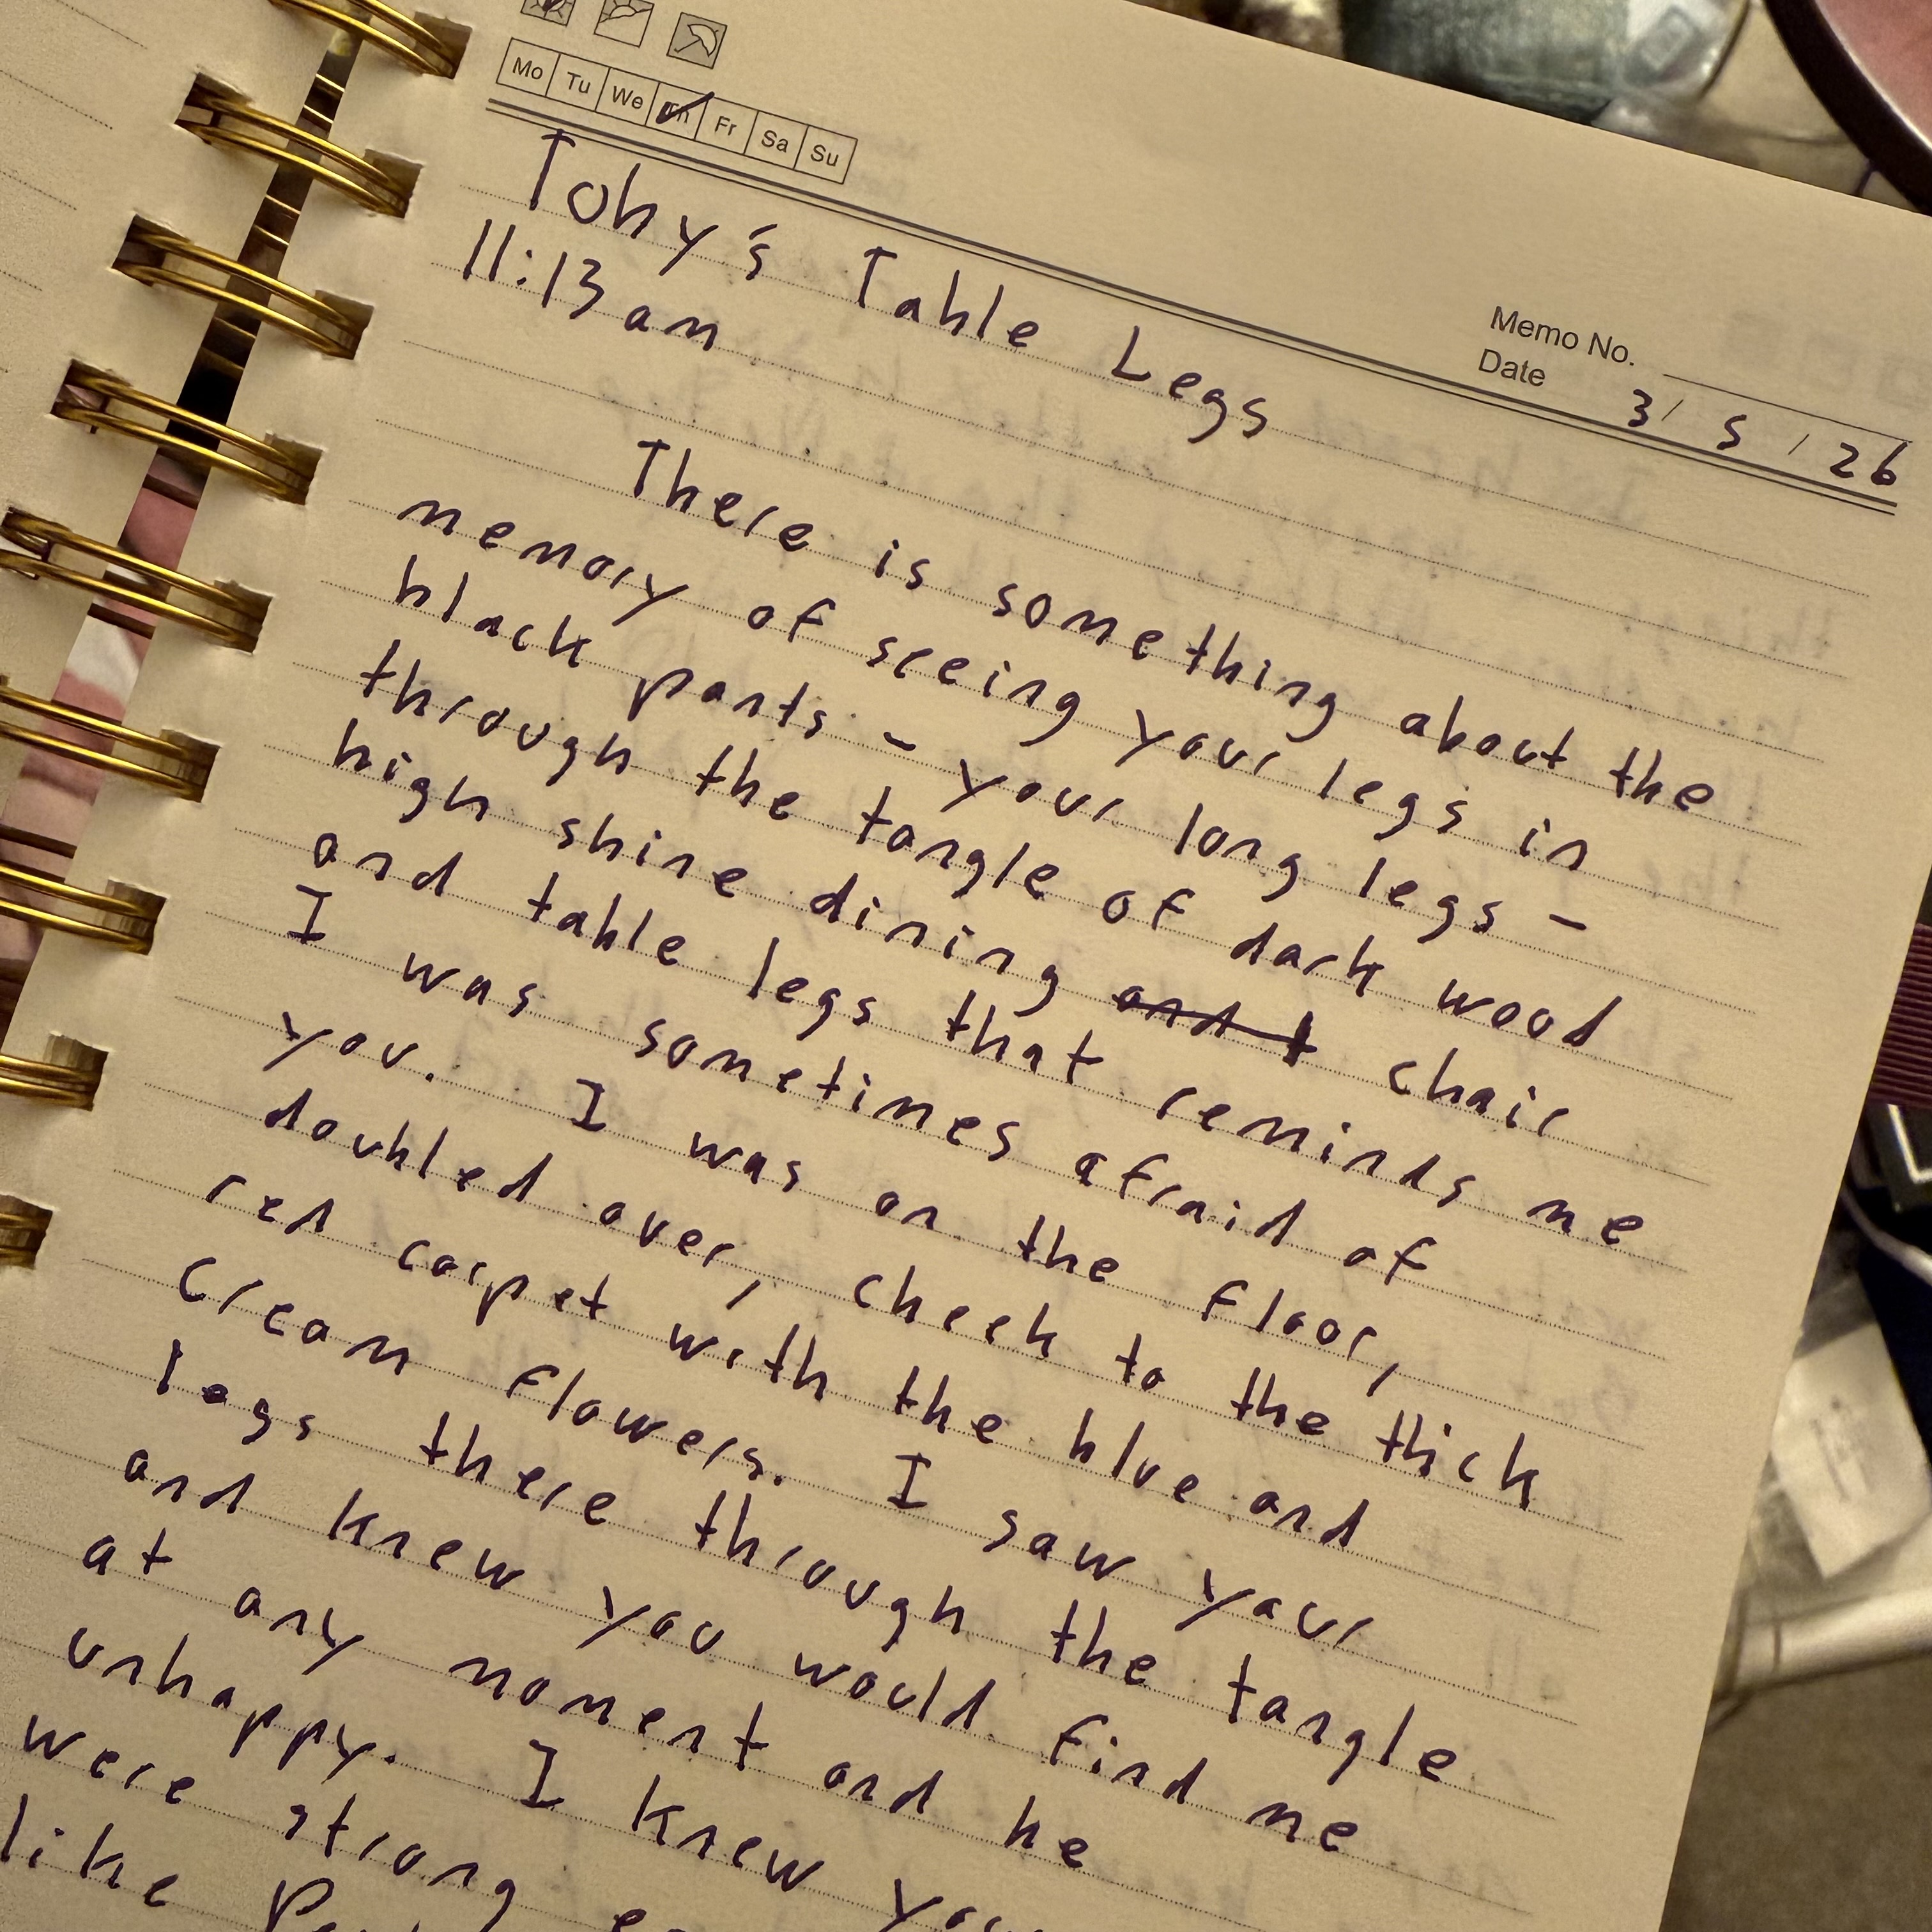 Mo Tu We Th Fr Sa Su
Memo No.
Date 3/5/26
Toby's Table Legs
11:13 am
There is something about the
memory of seeing your legs in
black pants - your long legs -
through the tangle of dark wood
high shine dining and t chair
and table legs that reminds me
I was sometimes afraid of
you. I was on the floor,
doubled over, cheek to the thick
red carpet with the blue and
cream flowers. I saw your
legs there through the tangle
and knew you would find me
at any moment and be
unhappy. I knew you
were strong
like